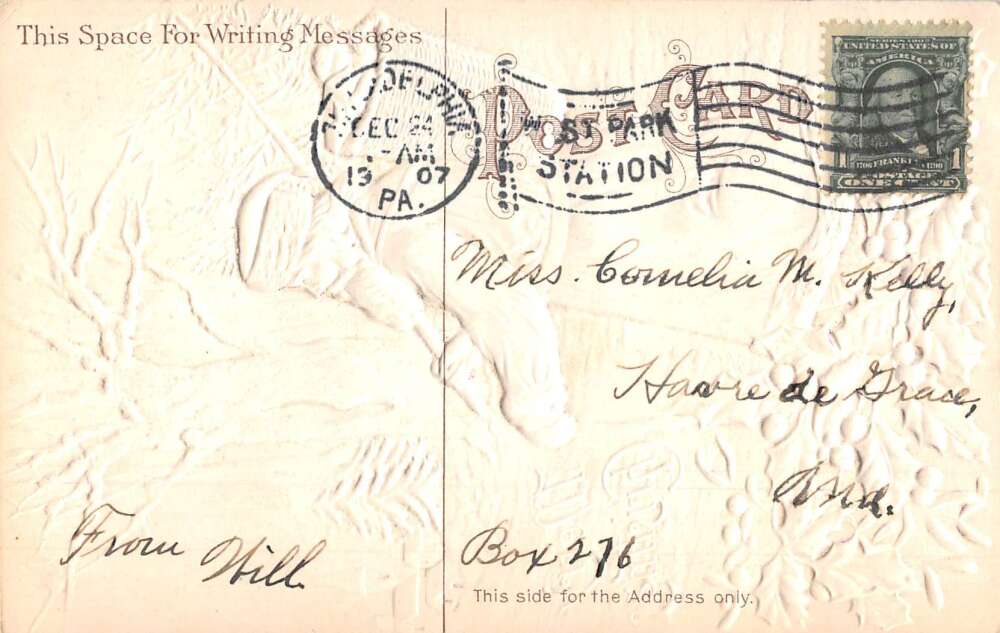 This Space For Writing Messages
POST CARD
PHILADELPHIA
DEC 24
AM
1907
PA.
WEST PARK
STATION
SERIES 1902
UNITED STATES OF
AMERICA
1 1706 FRANKLIN 1790 1
POSTAGE
ONE CENT
Miss. Cornelia M. Kelly,
Havre de Grace,
Md.
Box 276
From Will
This side for the Address only.